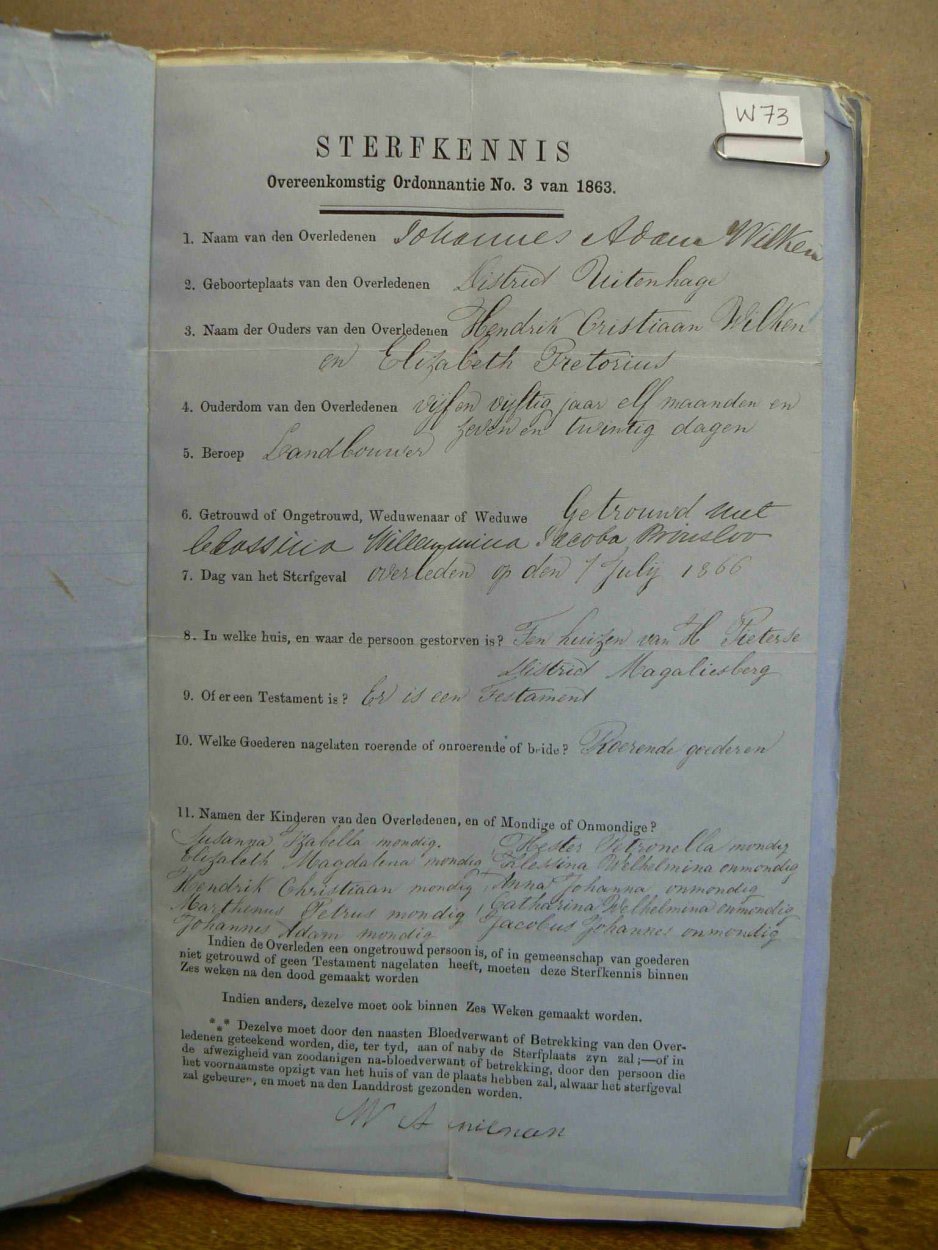 W73
STERFKENNIS
Overeenkomstig Ordonnantie No. 3 van 1863.
1. Naam van den Overledenen Johannes Adam Wilken
2. Geboorteplaats van den Overledenen District Uitenhage
3. Naam der Ouders van den Overledenen Hendrik Cristiaan Wilken
en Elizabeth Pretorius
4. Ouderdom van den Overledenen vijf en vyftig jaar elf maanden en
zeven en twintig dagen
5. Beroep Landbouwer
6. Getrouwd of Ongetrouwd, Weduwenaar of Weduwe Getrouwd met
Classina Willemmina Jacoba Prinsloo
7. Dag van het Sterfgeval overleden op den 7 July 1866
8. In welke huis, en waar de persoon gestorven is? Ten huizen van H Pieterse
District Magaliesberg
9. Of er een Testament is? Er is een Testament
10. Welke Goederen nagelaten roerende of onroerende of beide? Roerende goederen
11. Namen der Kinderen van den Overledenen, en of Mondige of Onmondige?
Susanna Izabella mondig. Hester Petronella mondig
Elizabeth Magdalena mondig Welhelmina onmondig
Hendrik Christiaan mondig Anna Johanna onmondig
Marthenus Petrus mondig Catharina Welhelmina onmondig
Johannes Adam mondig Jacobus Johannes onmondig
Indien de Overleden een ongetrouwd persoon is, of in gemeenschap van goederen
niet getrouwd of geen Testament nagelaten heeft, moeten deze Sterfkennis binnen
Zes weken na den dood gemaakt worden
Indien anders, dezelve moet ook binnen Zes Weken gemaakt worden.
*** Dezelve moet door den naasten Bloedverwant of Betrekking van den Over-
ledenen geteekend worden, die, ter tyd, aan of naby de Sterfplaats zyn zal;—of in
de afwezigheid van zoodanigen na-bloedverwant of betrekking, door den persoon die
het voornaamste opzigt van het huis of van de plaats hebben zal, alwaar het sterfgeval
zal gebeuren, en moet na den Landdrost gezonden worden.